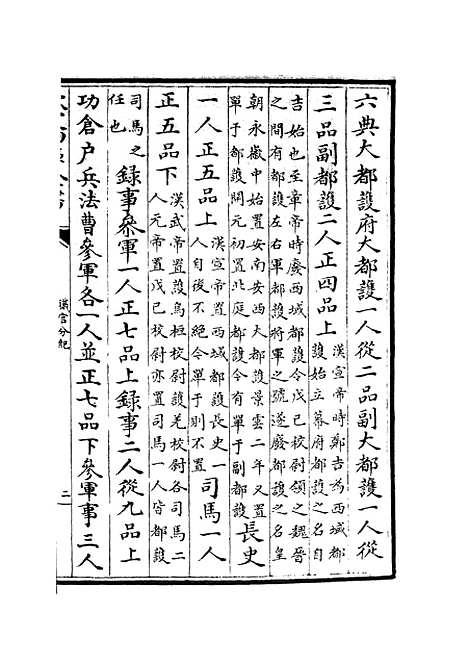 六典大都護府大都護一人從二品副大都護一人從
三品副都護二人正四品上漢宣帝時鄭吉為西域都
護始立幕府都護之名自
吉始也至章帝時廢西域都護令戊己校尉領之魏晉
之間有都護左右軍都護將軍之號遂廢都護之名皇
朝永徽中始置安南安西大都護景雲二年又置
單于都護開元初置北庭都護今有單于副都護長史
一人正五品上漢宣帝置西域都護長史一
人自後不絕今單于則不置司馬一人
正五品下漢武帝置護烏桓校尉護羌校尉各司馬二
人元帝置戊己校尉亦置司馬一人皆都護
司馬之
任也錄事參軍一人正七品上錄事二人從九品上
功倉户兵法曹參軍各一人並正七品下參軍事三人
職官分紀
二